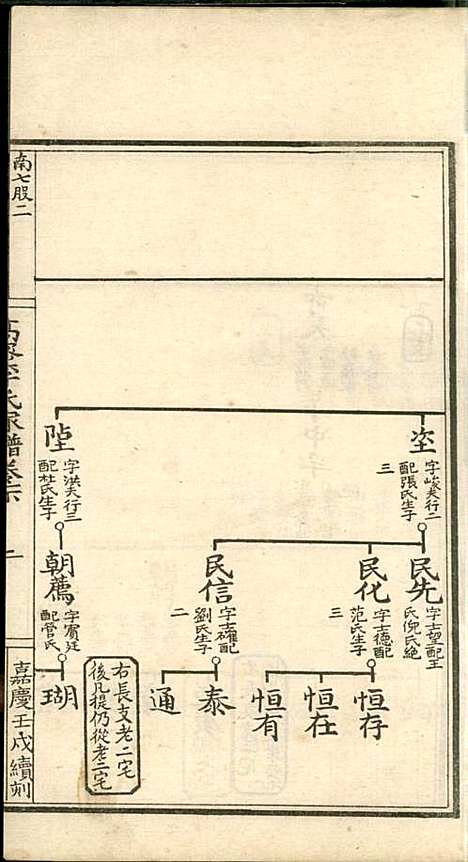 坙
字峻夫行二
配張氏生子
三
民先
字士望配王
氏倪氏絶
民化
字士德配
范氏生子
三
恒存
恒在
恒有
民信
字士確配
劉氏生子
二
泰
通
陞
字洪夫行三
配杜氏生子
朝薦
字賓廷
配管氏
瑚
右長支老二宅
後凡提仍從老二宅
南七股二
氏家譜卷六
嘉慶壬戌續刻